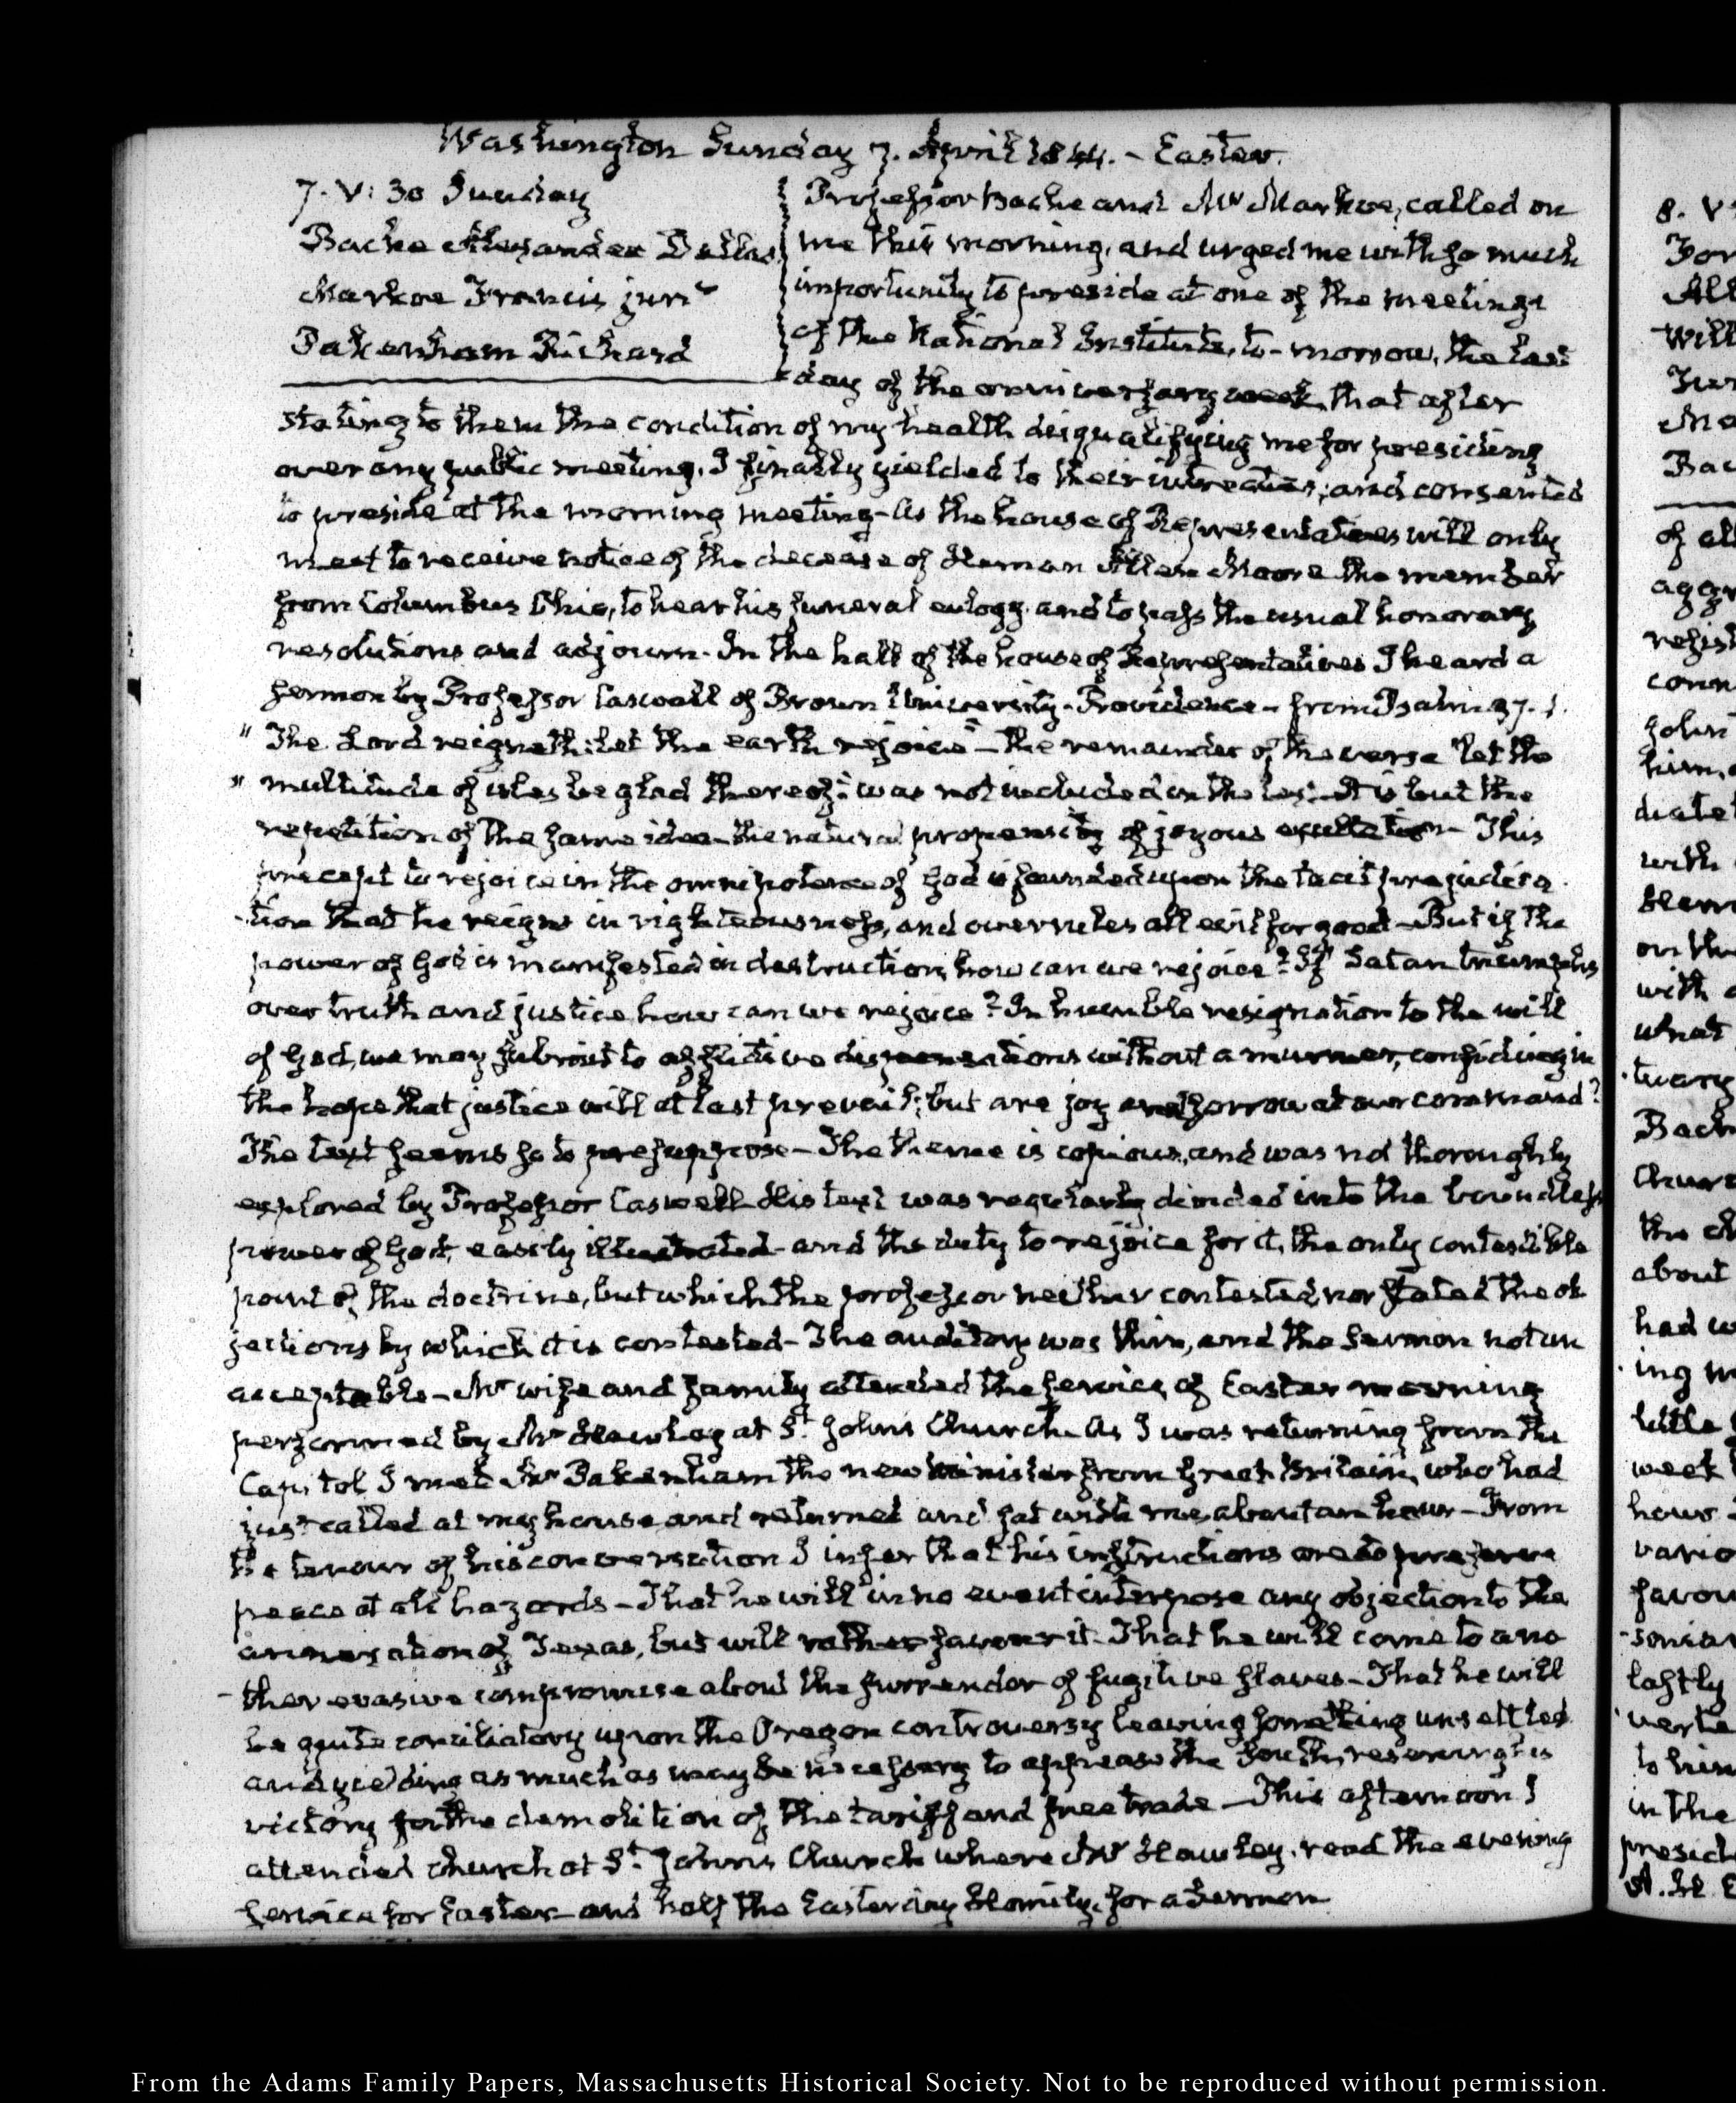 Washington Sunday 7. April 1844. - Easter.
7. V: 30 Sunday
Bache Alexander Dallas
Markoe Francis junr
Pakenham Richard
Professor Bache and Mr Markoe, called on
me this morning, and urged me with so much
importunity to preside at one of the meetings
of the National Institute, to-morrow, the last
day of the anniversary week, that after
stating to them the condition of my health disqualifying me for presiding
over any public meeting, I finally yielded to their intreaties, and consented
to preside at the morning meeting - As the house of Representatives will only
meet to receive notice of the decease of Heman Allen Moore the member
from Columbus Ohio, to hear his funeral eulogy and to pass the usual honorary
resolutions and adjourn. In the hall of the house of Representatives I heard a
sermon by Professor Caswell of Brown University - Providence - from Psalm 97. 1.
" The Lord reigneth: let the earth rejoice" - the remainder of the verse "let the
" multitude of isles be glad thereof:" was not included in the text - It is but the
repetition of the same idea - the natural propensity of joyous exultation - This
precept to rejoice in the omnipotence of God is founded upon the tacit prejudica-
-tion that he reigns in righteousness, and overrules all evil for good - But if the
power of God is manifested in destruction, how can we rejoice? If Satan triumphs
over truth and justice, how can we rejoice? In humble resignation to the will
of God, we may submit to afflictive dispensations without a murmur, confiding in
the hope that justice will at last prevail; but are joy and sorrow at our command?
The text seems so to presuppose - The theme is copious, and was not thoroughly
explored by Professor Caswell - His text was regularly divided into the boundless
power of God, easily illustrated - and the duty to rejoice for it, the only contestible
point of the doctrine, but which the professor neither contested, nor stated the ob
jections by which it is contested - The auditory was thin, and the Sermon not un
acceptable - My wife and family attended the service of Easter morning
performed by Mr Hawley at St. John's Church. As I was returning from the
Capitol I met Mr Pakenham the new minister from Great Britain, who had
just called at my house and returned and sat with me about an hour - From
the tenour of his conversation I infer that his instructions are to preserve
peace at all hazards - That he will in no event interpose any objection to the
annexation of Texas, but will rather favour it. That he will come to ano
-ther evasive compromise about the surrender of fugitive slaves - That he will
be quite conciliatory upon the Oregon controversy leaving something unsettled
and yielding as much as may be necessary to appease the South, reserving his
victory for the demolition of the tariff and free trade - This afternoon I
attended church at St. John's Church where Mr Hawley, read the evening
service for Easter - and half the Easter day Homily, for a Sermon.
8. V
For
All
Will
Tur
Ma
Bac
of all
aggr
regist
conn
John
him,
diatel
with
Hem
on the
with
what
Bach
Chur
the
about
had w
ing m
little
week
hours
vario
favou
lastly
to him
in the
presid
From the Adams Family Papers, Massachusetts Historical Society. Not to be reproduced without permission.